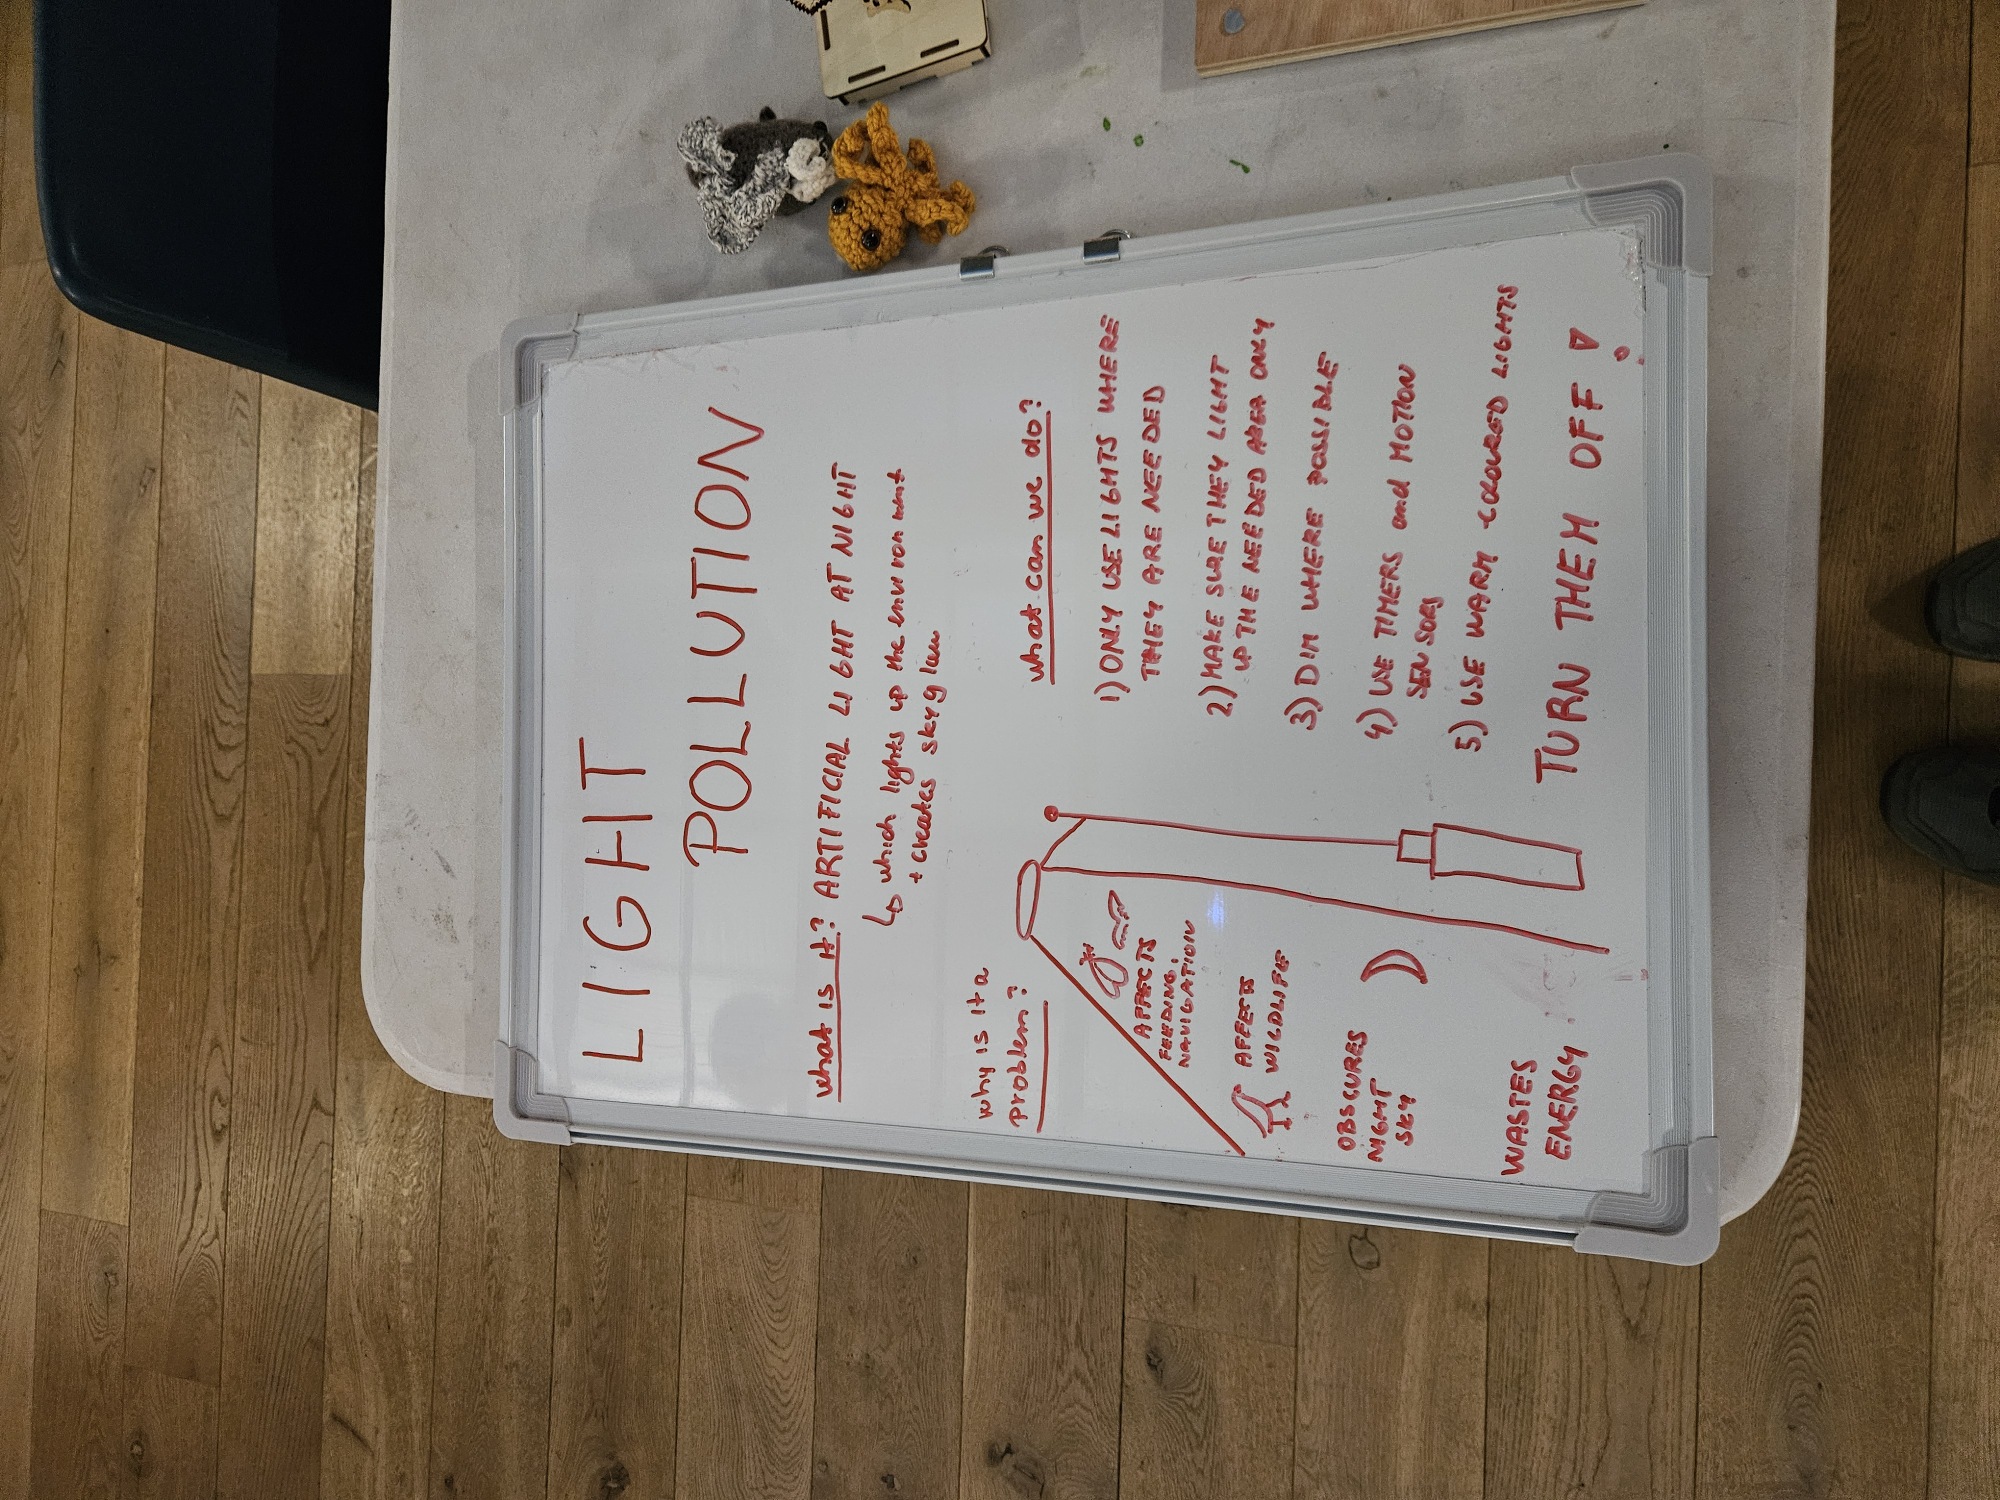 LIGHT
POLLUTION
what is it? ARTIFICIAL LIGHT AT NIGHT
which lights up the environment
+ creates skyglow
why is it a
problem?
AFFECTS
FEEDING,
NAVIGATION
AFFECTS
WILDLIFE
OBSCURES
NIGHT
SKY
WASTES
ENERGY
what can we do?
1) ONLY USE LIGHTS WHERE
THEY ARE NEEDED
2) MAKE SURE THEY LIGHT
UP THE NEEDED AREA ONLY
3) DIM WHERE POSSIBLE
4) USE TIMERS and MOTION
SENSORS
5) USE WARM COLOURED LIGHTS
TURN THEM OFF!